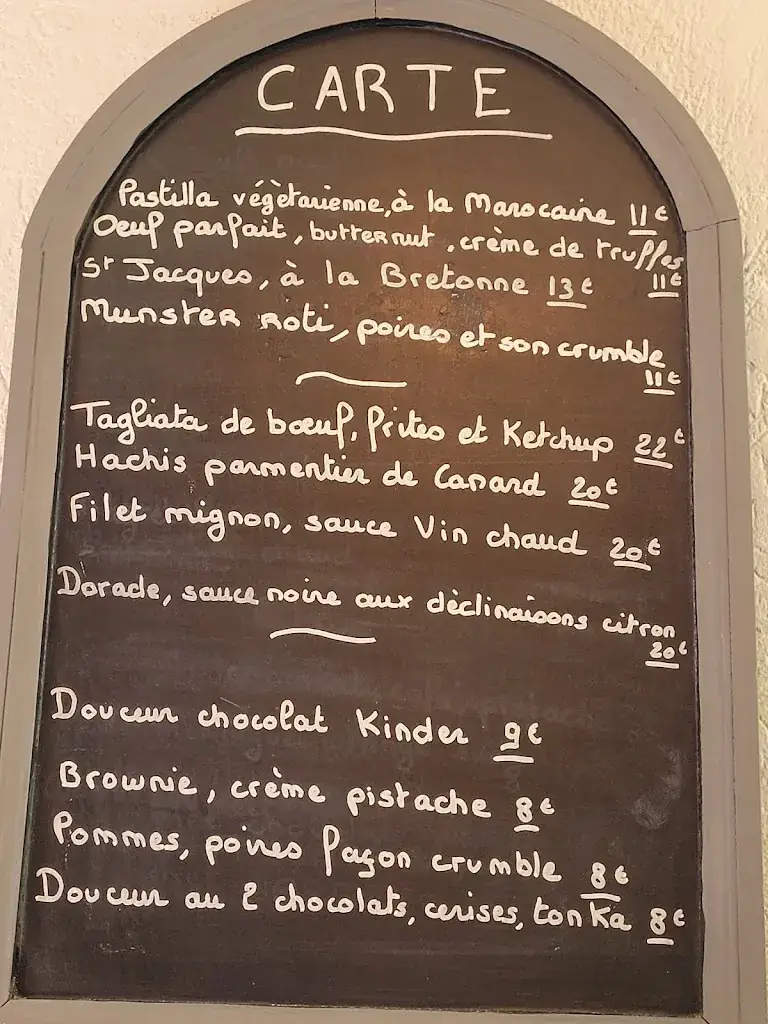 CARTE
Pastilla végètarienne, à la Marocaine 11€
Oeuf parfait, butternut, crème de truffes
11€
St Jacques, à la Bretonne 13€
Munster roti, poires et son crumble
11€
Tagliata de bœuf, frites et Ketchup 22€
Hachis parmentier de Canard 20€
Filet mignon, sauce Vin chaud 20€
Dorade, sauce noire aux dèclinaisons citron
20€
Douceur chocolat Kinder 9€
Brownie, crème pistache 8€
Pommes, poires façon crumble 8€
Douceur au 2 chocolats, cerises, tonka 8€